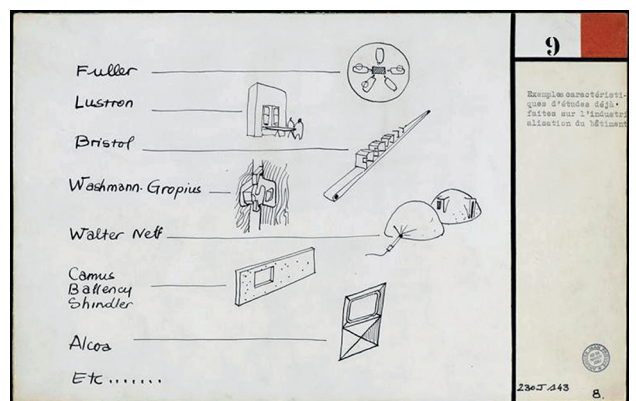 Fuller
Lustron
Bristol
Washmann-Gropius
Walter Neff
Camus
Ballency
Shindler
Alcoa
Etc.......
9
Exemples caractéristi-
ques d'études déjà
faites sur l'industri
alisation du bâtiment
230J.143
8.